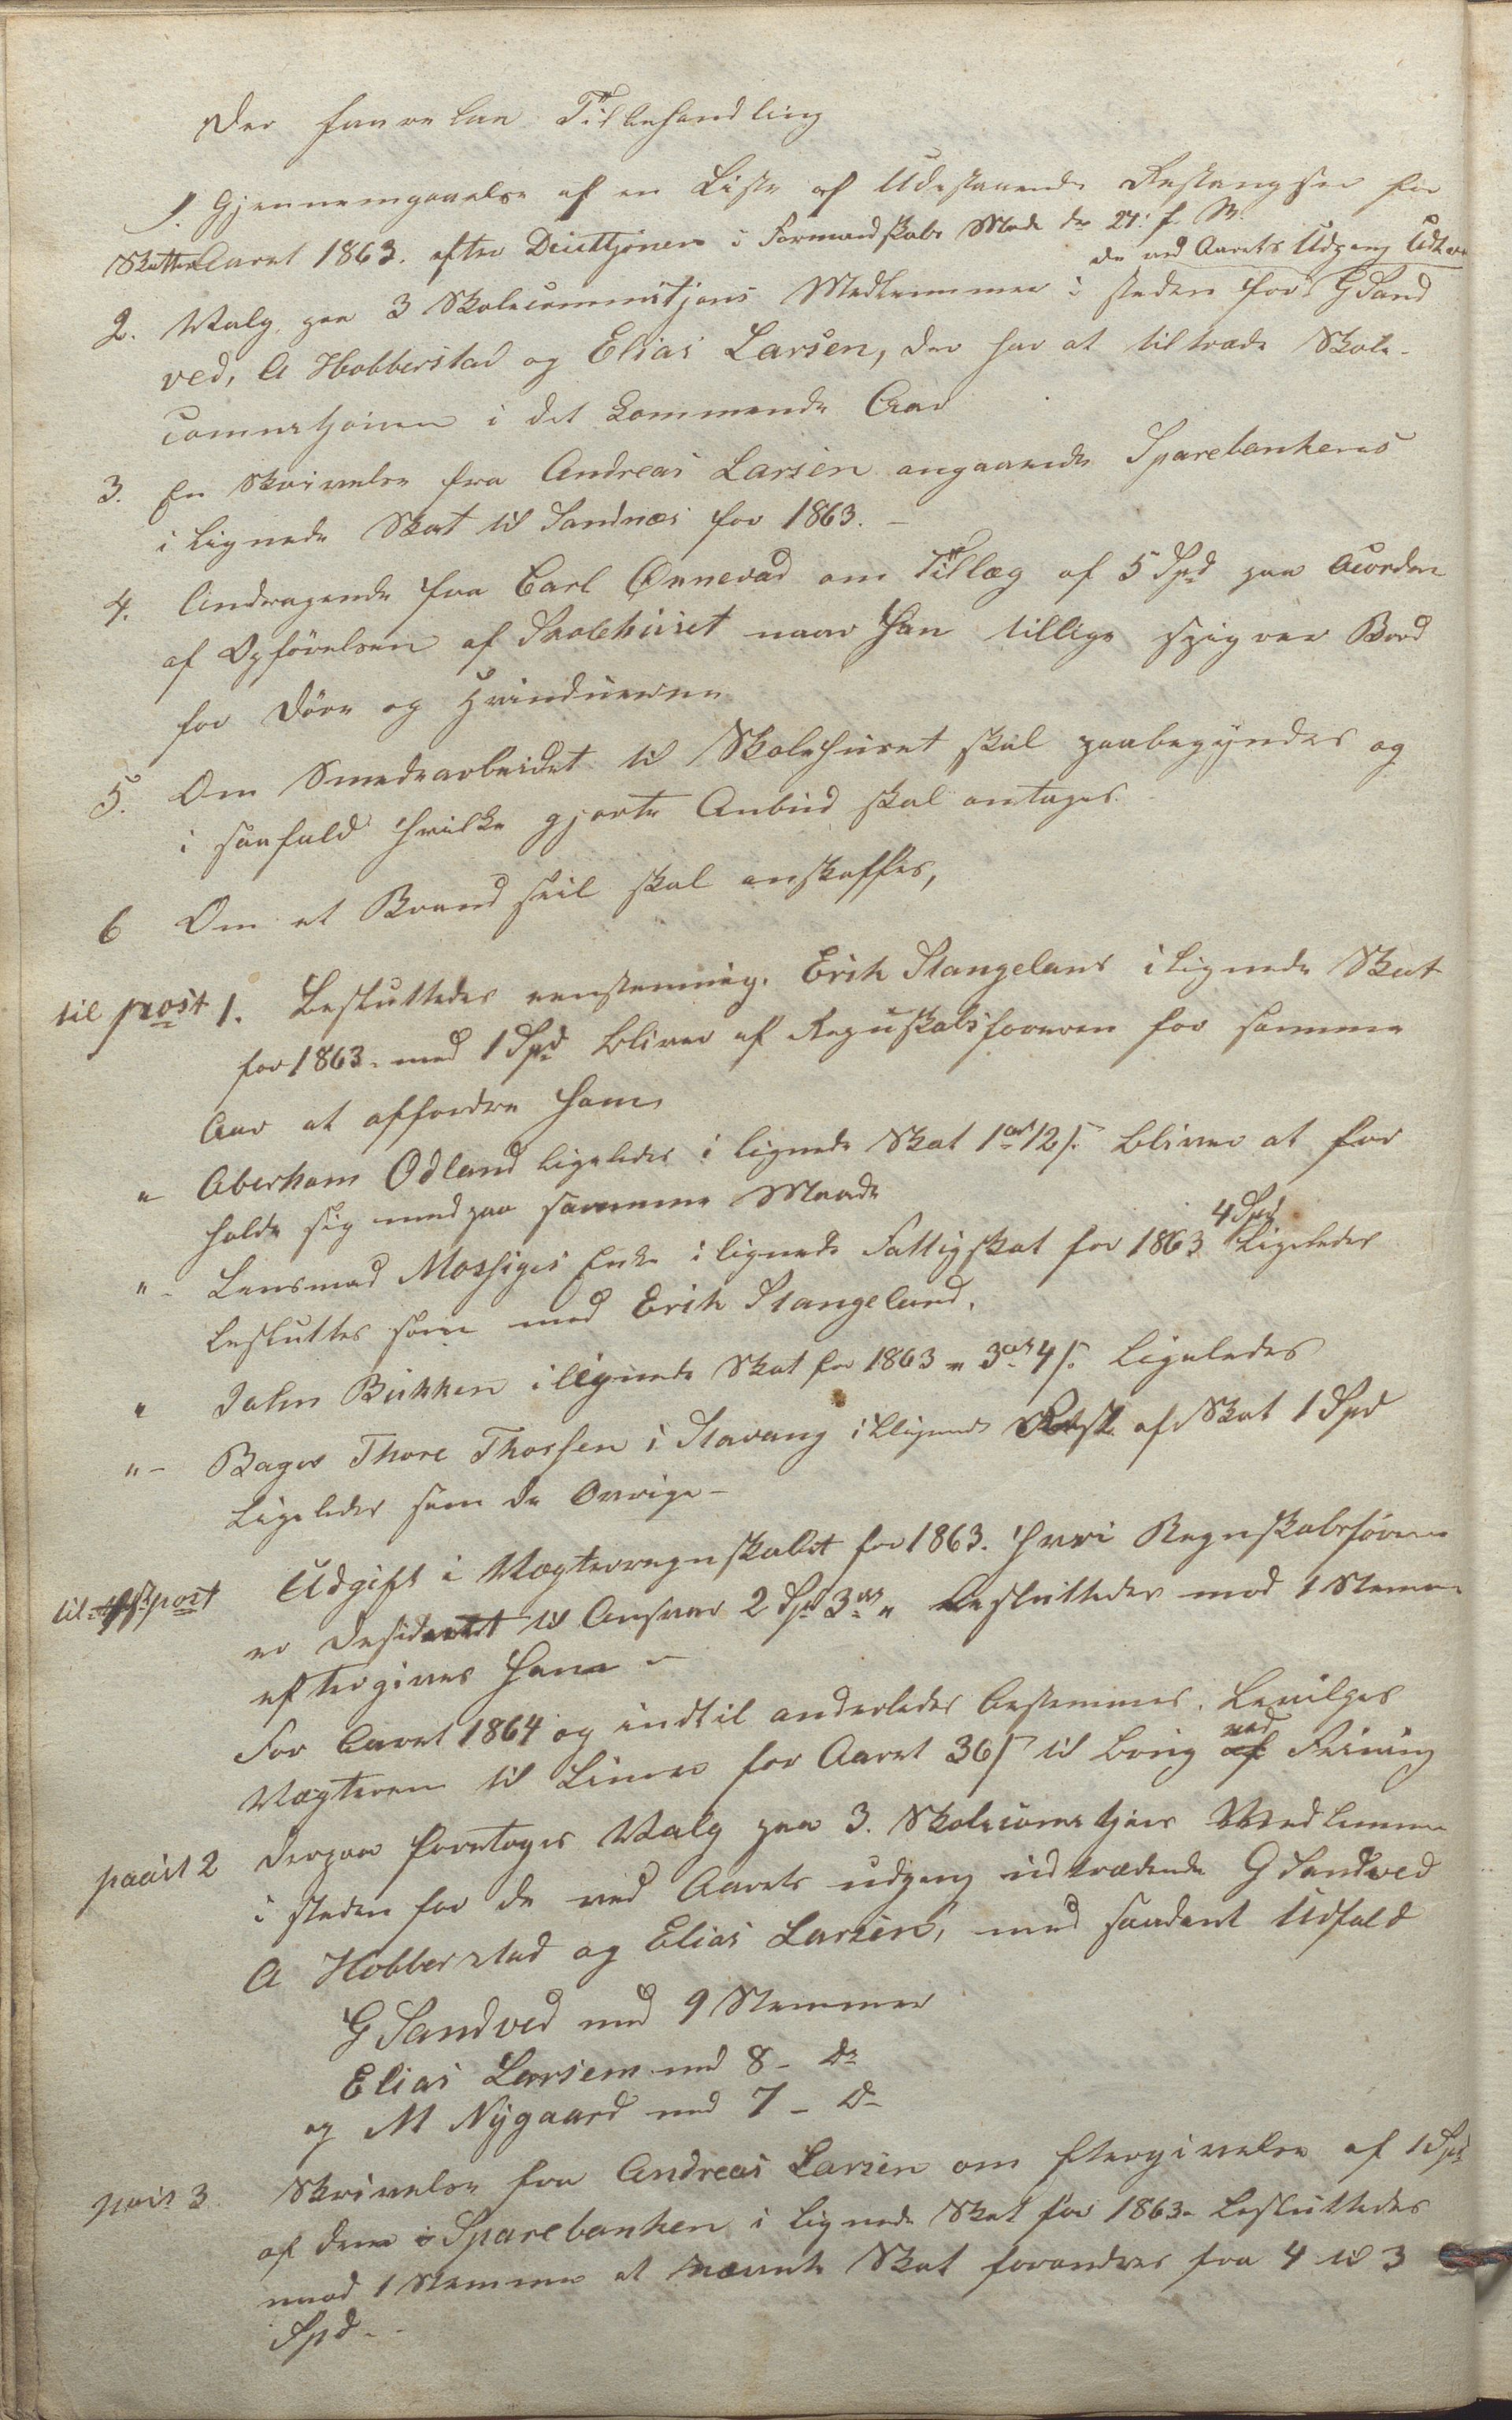 Der foreelaa Til behandling
1. Gjennemgaaelse af en Liste af Udestaaende Restangser for
Skatten Aaret 1863. efter i Formandskabs Møde d. 27. f. M.
de ved Aarets Udgang
2. Valg paa 3 Skolecommitjons Medlemmer i steden for G Sand
ved, A Hobberstad og Elias Larsen, der har at tiltræde Skole-
i det kommende Aar
3. En Skrivelse fra Andreas Larsen angaaende Sparebankens
i lignede Skat til Sandnæs for 1863. –
4. Andragende fra Carl Ønnevad om Tillæg af 5 Spd paa Acorden
af Opførelsen af Skolehuset naar han tillige spigrer Bord
for Döre og Hvinduerne
5. Om Smedearbeidet til Skolehuset skal paabegyndes og
i saafald hvilke gjorte Anbud skal antages.
6 Om et Brand seil skal anskaffes,
til post 1. Besluttedes eenstemmig. Erik Stangelans i lignede Skat
for 1863. med 1 Spd bliver af Reguskabsføreren for samme
Aar at affordre ham
" Aberham Odland ligeledes i lignede Skat 1 ort 12 s. bliver at for
holde sig med paa samme Maade
4 Spd
" - Lensmad Mossiges Enke i lignede Fattigskat for 1863 ligeledes
besluttes som med Erik Stangeland.
" John Bukken i lignede Skat for 1863 " 3 ort 4 s. ligeledes
" - Bager Thore Thorsen i Stavang ilignede Rest af Skat 1 Spd
ligeledes som de Øvrige –
til post Udgift i Vægterregnskabet for 1863. hvori Regnskabsføreren
er Desideret til Ansvar 2 Spd 3 ort " besluttedes mod 1 Stemme
eftergives ham –
For Aaret 1864 og indtil anderledes bestemmes. bevilges
Vægteren til Limer for Aaret 36 s til brug ved Feining
paast 2 Derpaa foretages Valg paa 3. Medlemmer
i steden for de ved Aarets udgang udtrædende G Sandved
A Hobberstad og Elias Larsen, med saadant Udfald
G Sandved med 9 Stemmer
Elias Larsem med 8 - do
og M Nÿgaard med 7 - do
post 3 Skrivelse fra Andreas Larsen om Eftergivelse af 1 Spd
af den Sparebanken i lignede Skat for 1863. besluttedes
mod 1 Stemme at nævnte Skat forandres fra 4 til 3
Spd. -